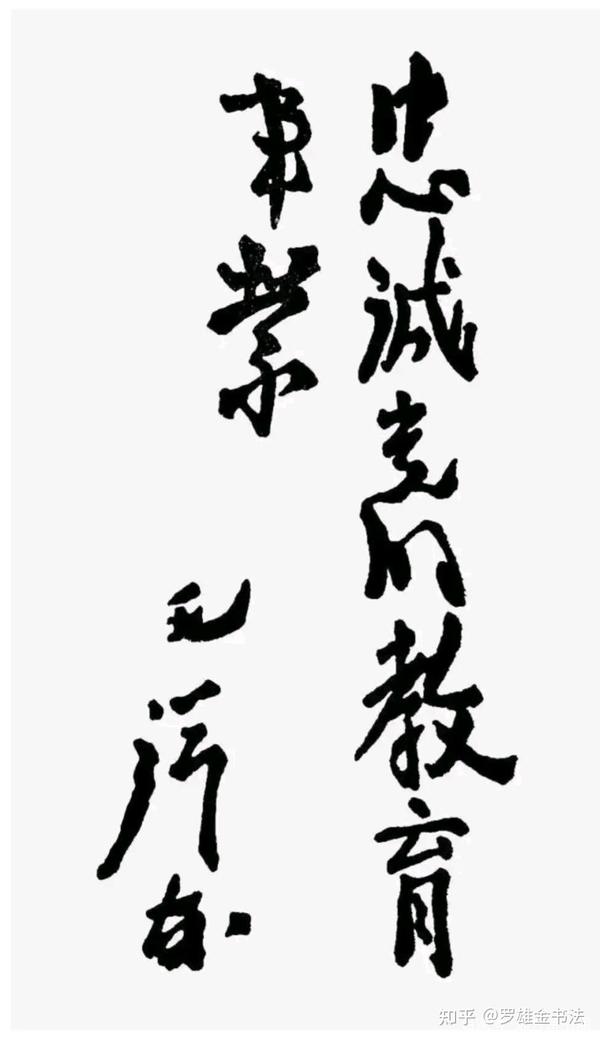 忠诚党的教育
事業
毛泽东
知乎 @罗雄金书法